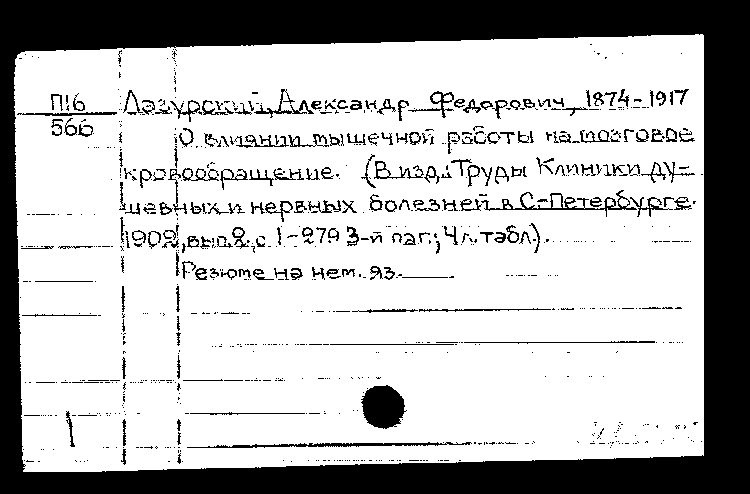 П16
566
Лазурский, Александр Федорович, 1874-1917
О влиянии мышечной работы на мозговое
кровообращение. (В изд.: Труды Клиники ду-
шевных и нервных болезней в С-Петербурге.
1902, вып. 2, с 1-279 3-й паг.; 4 л. табл).
Резюме на нем. яз.